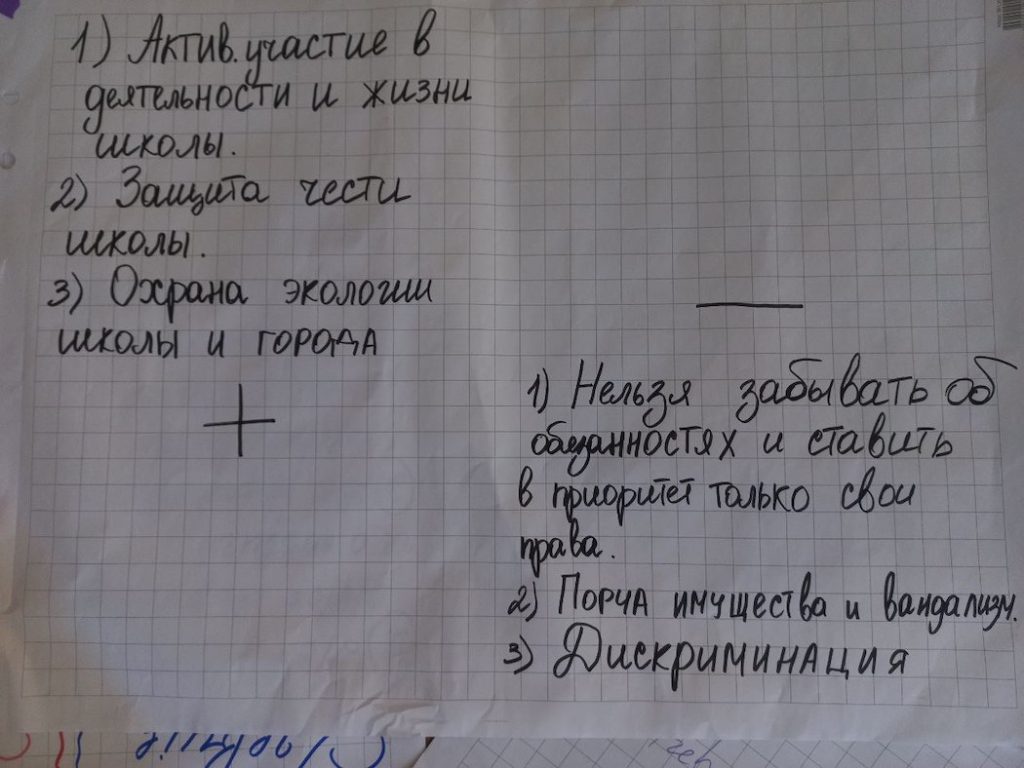 1) Актив. участие в
деятельности и жизни
школы.
2) Защита чести
школы.
3) Охрана экологии
школы и города
+
—
1) Нельзя забывать об
обязанностях и ставить
в приоритет только свои
права.
2) Порча имущества и вандализм.
3) Дискриминация